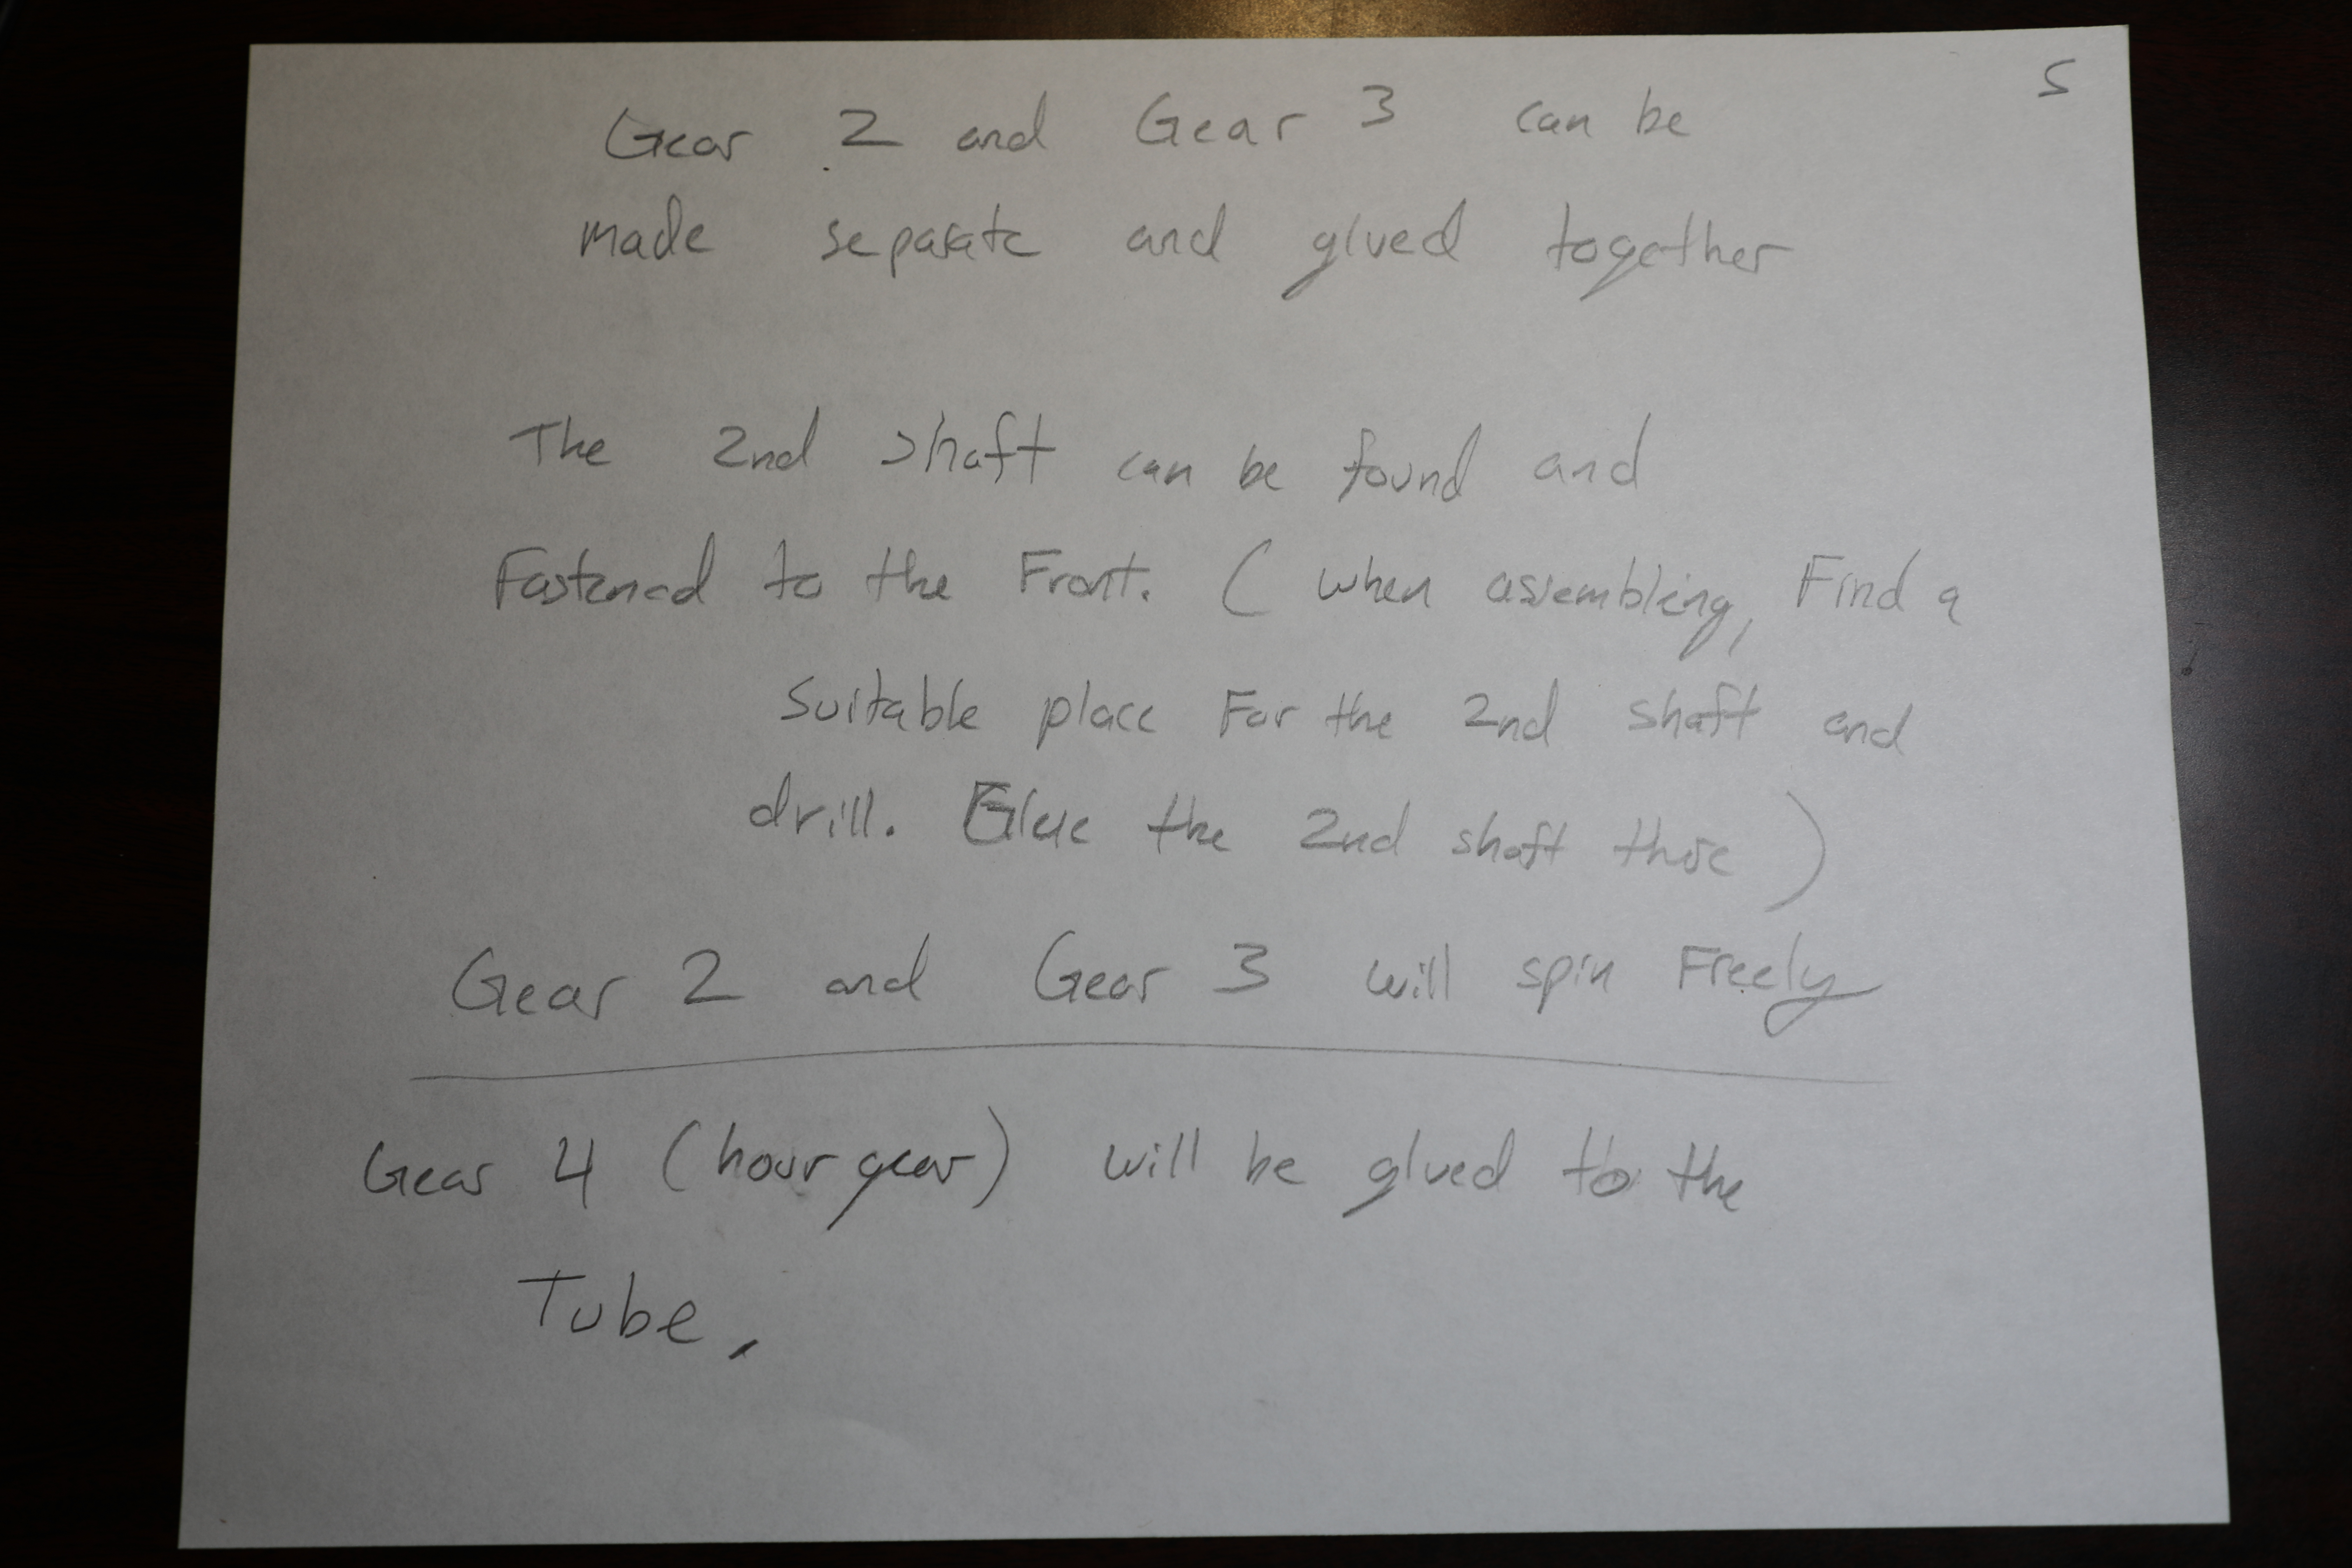 5
Gear 2 and Gear 3 can be
made separate and glued together
The 2nd shaft can be found and
Fastened to the Front. ( when assembling, Find a
suitable place For the 2nd shaft and
drill. Glue the 2nd shaft there )
Gear 2 and Gear 3 will spin Freely
Gear 4 (hour gear) will be glued to the
Tube,